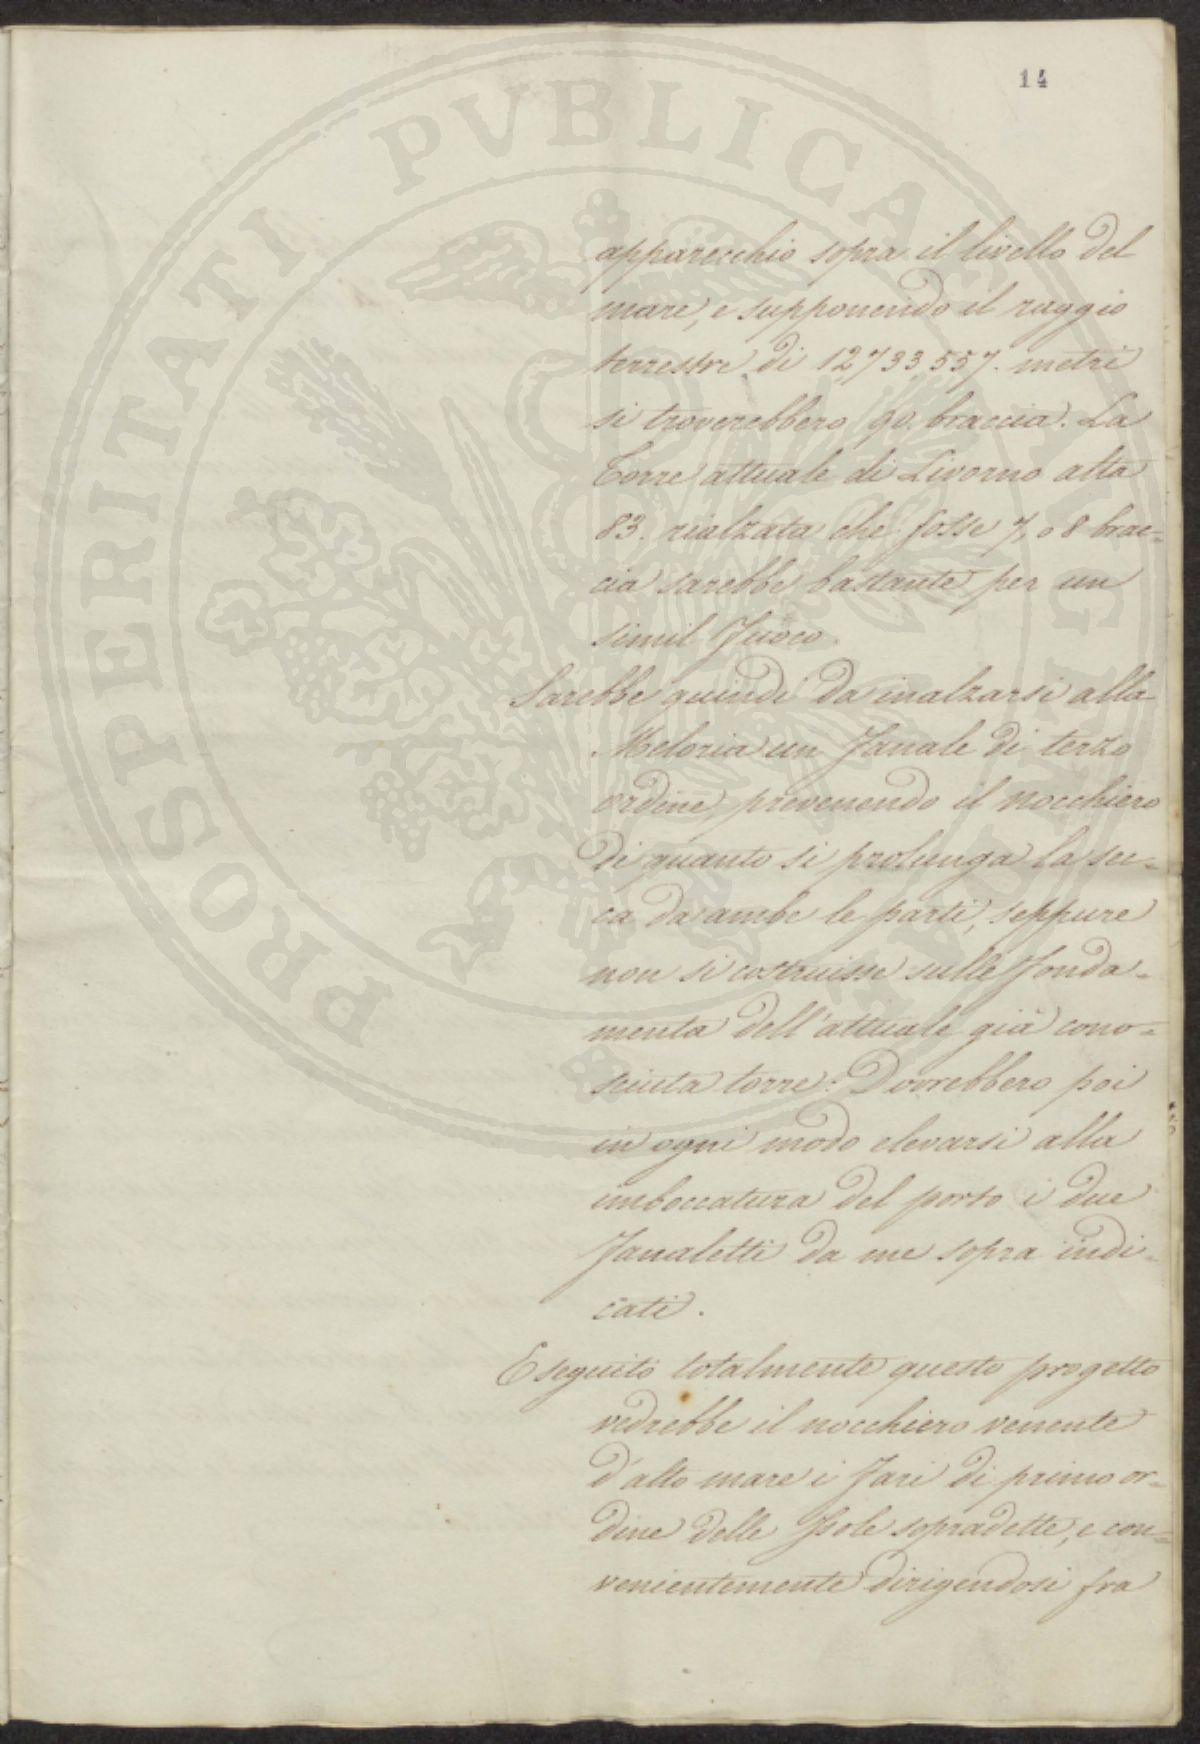 14
PROSPERITATI PVBLICAE AVGENDAE
apparecchio sopra il livello del
mare, e supponendo il raggio
terrestre di 12,733,557. metri
si troverebbero 90. braccia. La
Torre attuale di Livorno alta
83. rialzata che fosse 7, o 8 brac=
cia sarebbe bastante per un
simil Fuoco.
Sarebbe quindi da inalzarsi alla
Meloria un Fanale di terzo
ordine, prevenendo il nocchiero
di quanto si prolunga la sec=
ca da ambe le parti, seppure
non si costruisse sulle fonda=
menta dell'attuale già cono=
sciuta torre: Dovrebbero poi
in ogni modo elevarsi alla
imboccatura del porto i due
Fanaletti da me sopra indi=
cati.
Eseguito totalmente questo progetto
vedrebbe il nocchiero venente
d'alto mare i Fari di primo or=
dine delle Isole sopradette, e con=
venientemente dirigendosi fra